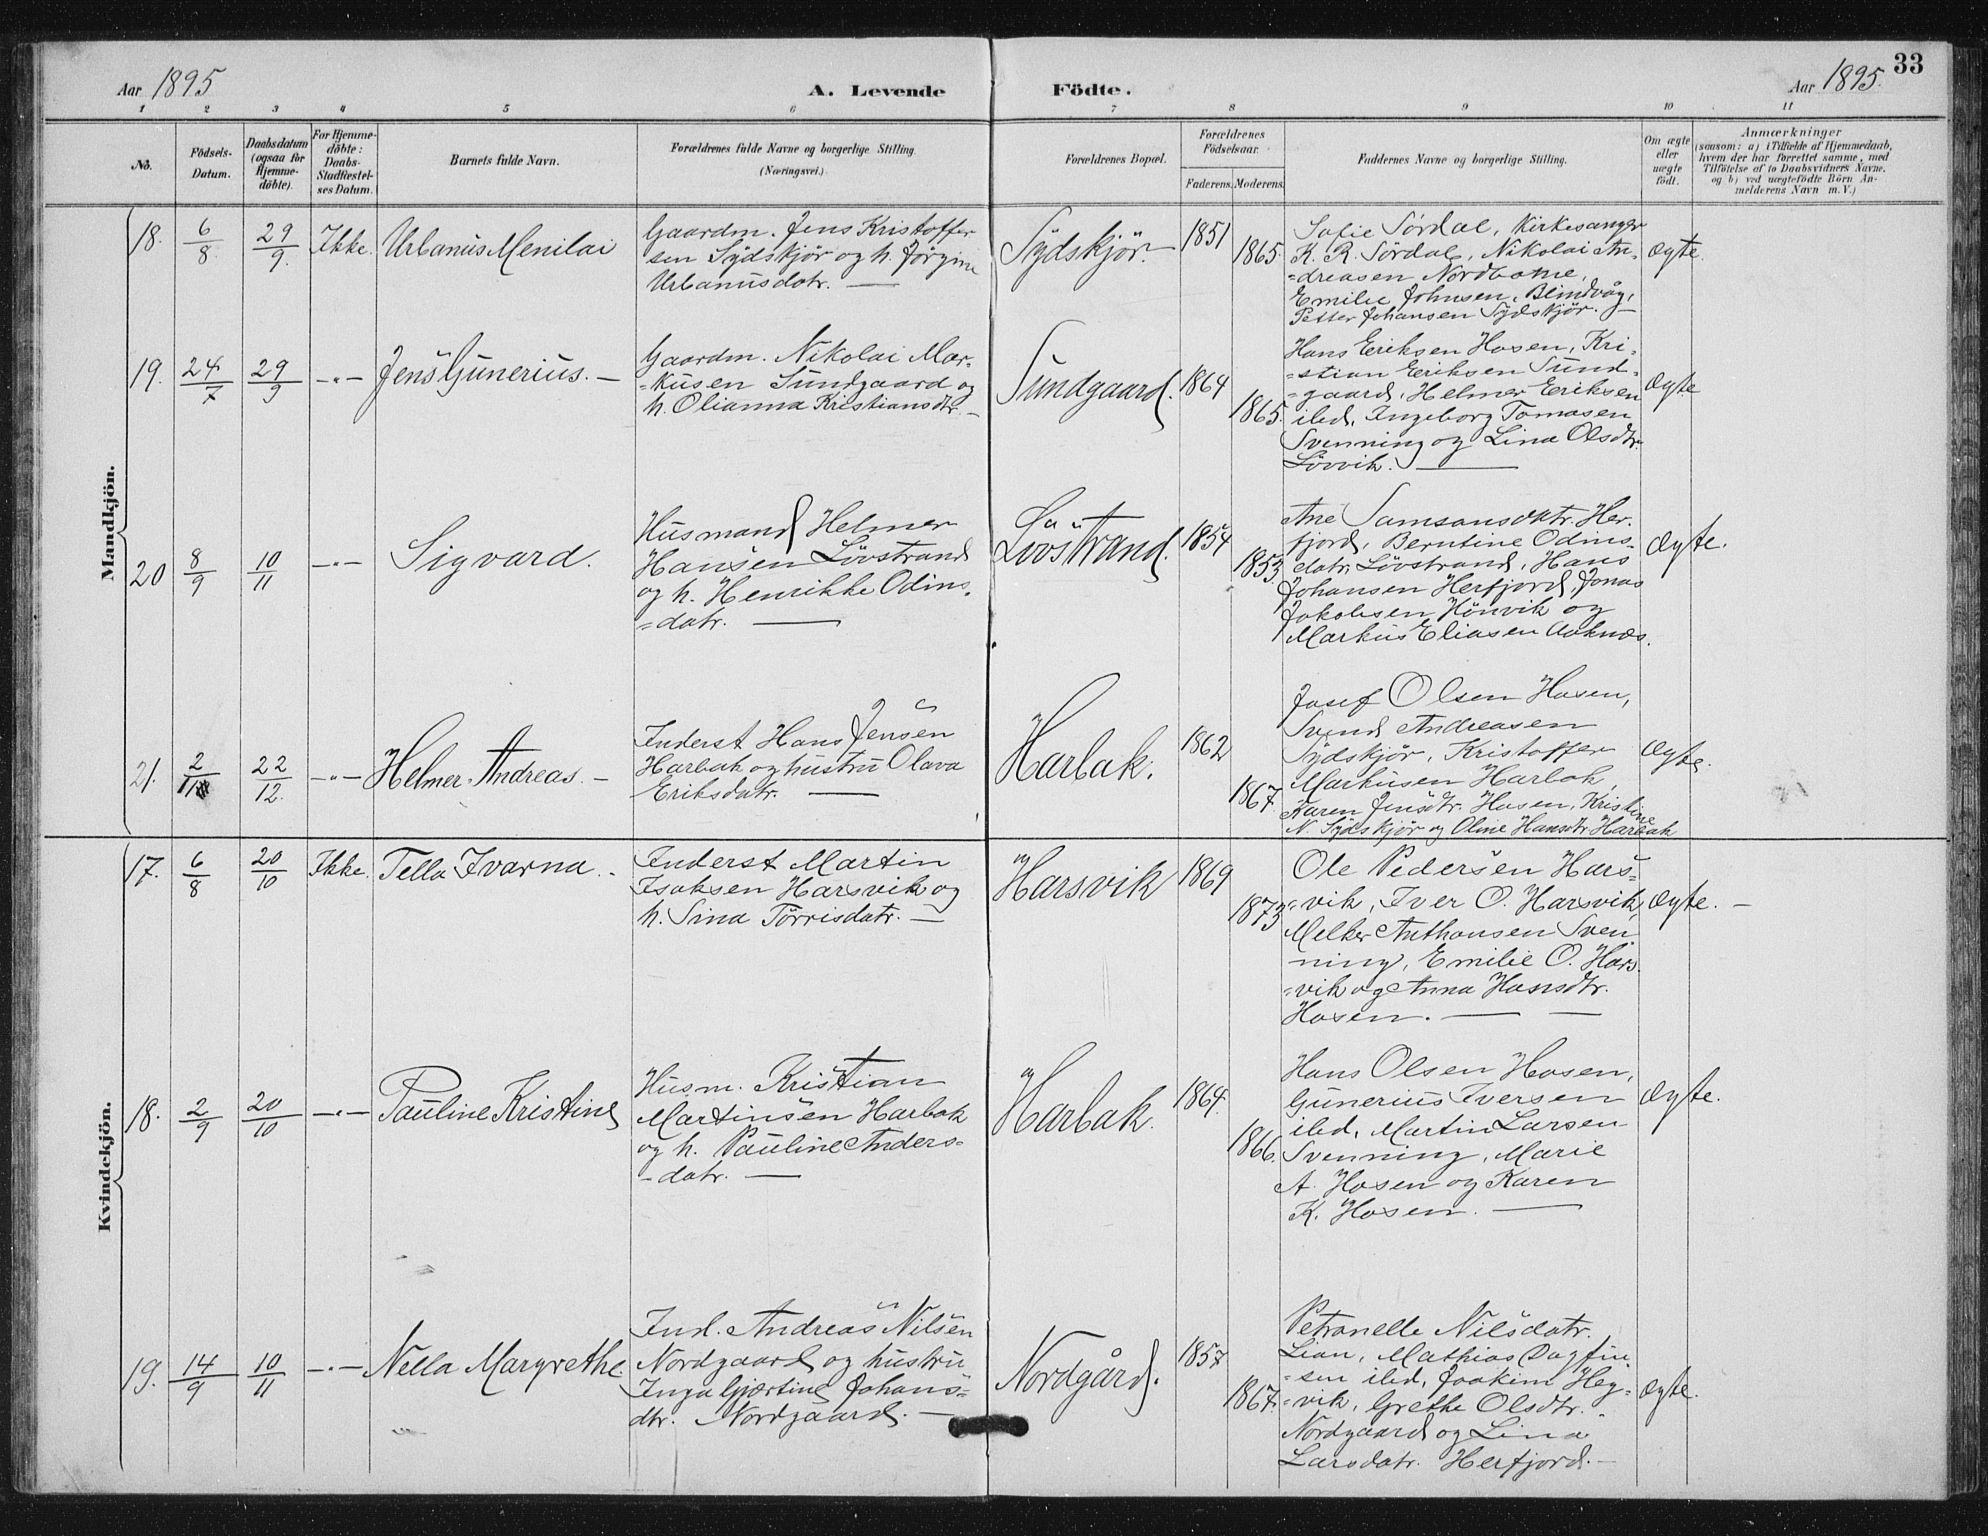 33
Aar 1895
A. Levende
Födte.
Aar 1895.
1 2 3 4 5 6 7 8 9 10 11
No.
Födsels-
Datum.
Daabsdatum
(ogsaa for
Hjemme-
döbte).
For Hjemme-
döbte:
Daabs-
Stadfæstel-
ses Datum.
Barnets fulde Navn.
Forældrenes fulde Navne og borgerlige Stilling.
(Næringsvei.)
Forældrenes Bopæl.
Forældrenes
Födselsaar.
Faderens.
Moderens.
Faddernes Navne og borgerlige Stilling.
Om ægte
eller
uægte
födt.
Anmærkninger
(saasom: a) i Tilfælde af Hjemmedaab,
hvem der har forrettet samme, med
Tilföielse af to Daabsvidners Navne,
og b) ved uægtefödte Börn An-
melderens Navn m. V.)
Mandkjön.
18. 6/8 29/9. Ikke. Urbanus Menilai
Gaardm. Jens Kristoffer
sen Sydskjör og h. Jörgine
Urbanusdatr. —
Sydskjör. 1851 1865.
Sofie Sördal, Kirkesanger
K. R. Sördal, Nikolai An-
=dreasen Nordbotne,
Emilie Johnsen, Blindvåg,
Petter Johansen Sydskjör. —
ægte.
19. 24/7 29/9 —"— Jens Gunerius. —
Gaardm. Nikolai Mar-
=kusen Sundgaard og
h. Olianna Kristiansdtr. —
Sundgaard. 1864 1865.
Hans Eriksen Hosen, Kri-
=stian Eriksen Sund-
=gaard, Helmer Eriksen
ibd, Ingeborg Tomasen
Svenning og Lina Olsdtr.
Lövvik. —
ægte
20 8/9 10/11 —"— Sigvard.
Husmand Helmer
Hansen Lövstrand
og h. Henrikke Odins-
=datr. —
Lövstrand. 1854 1853
Ane Samsonsdatr. Her-
fjord, Berntine Odins-
datr. Lövstrand, Hans
Johansen Herfjord, Jonas
Jakobsen Hönvik og
Markus Eliasen Aaknæs.
ægte.
21. 2/11 22/12. —"— Helmer Andreas. —
Inderst Hans Jensen
Harbak og hustru Olava
Eriksdatr. —
Harbak. 1862 1867.
Josef Olsen Hosen,
Svend Andreasen
Sydskjör, Kristoffer
Markusen Harbak,
Karen Jensdtr. Hosen, Kristine
N. Sydskjör og Oline Hansdtr. Harbak
ægte.
Kvindekjön.
17. 6/8 20/10 Ikke. Tella Ivarna. -
Inderst Martin
Isaksen Harsvik og
h. Sina Törrisdatr. —
Harsvik 1869 1873
Ole Pedersen Hars-
=vik, Iver O. Harsvik,
Melker Anthonsen Sven
ning, Emilie O. Hars-
=vik og Anna Hansdtr.
Hosen. — —
ægte. —
18. 2/9 20/10 —"— Pauline Kristine
Husm. Kristian
Martinsen Harbak
og h. Pauline Anders-
-datr. —
Harbak. 1864. 1866.
Hans Olsen Hosen,
Gunerius Iversen
ibd, Martin Larsen
Svenning, Marie
A. Hosen og Karen
K. Hosen. —
ægte.
19. 14/9 10/11 —"— Nella Margrethe.
Ind. Andreas Nilsen
Nordgaard og hustru
Inga Gjærtine Johans-
dtr. Nordgaard. —
Nordgård. 1857 1867.
Petronelle Nilsdatr.
Lian, Mathias Dagfin-
-sen ibd, Joakim Heg-
=vik, Grethe Olsdtr.
Nordgaard og Lina
Larsdatr. Herfjord. —
ægte.